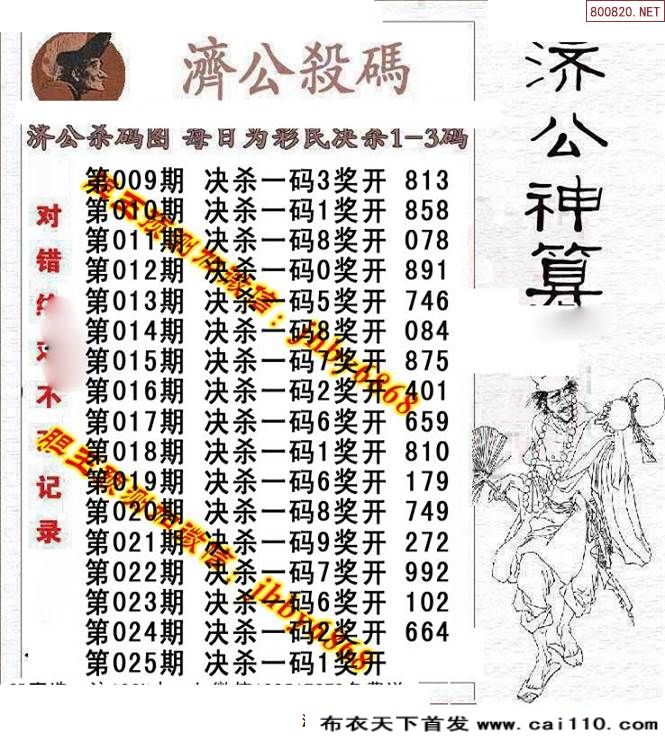 800820.NET
濟公殺碼
济公神算
济公杀码图 每日为彩民决杀1-3码
对错 不 记录
第009期 决杀一码3奖开 813
第010期 决杀一码1奖开 858
第011期 决杀一码8奖开 078
第012期 决杀一码0奖开 891
第013期 决杀一码5奖开 746
第014期 决杀一码8奖开 084
第015期 决杀一码7奖开 875
第016期 决杀一码2奖开 401
第017期 决杀一码6奖开 659
第018期 决杀一码1奖开 810
第019期 决杀一码6奖开 179
第020期 决杀一码8奖开 749
第021期 决杀一码9奖开 272
第022期 决杀一码7奖开 992
第023期 决杀一码6奖开 102
第024期 决杀一码2奖开 664
第025期 决杀一码1奖开
胆王预测加微信：jhby6868
胆王预测加微信：jhby6868
布衣天下首发 www.cai110.com